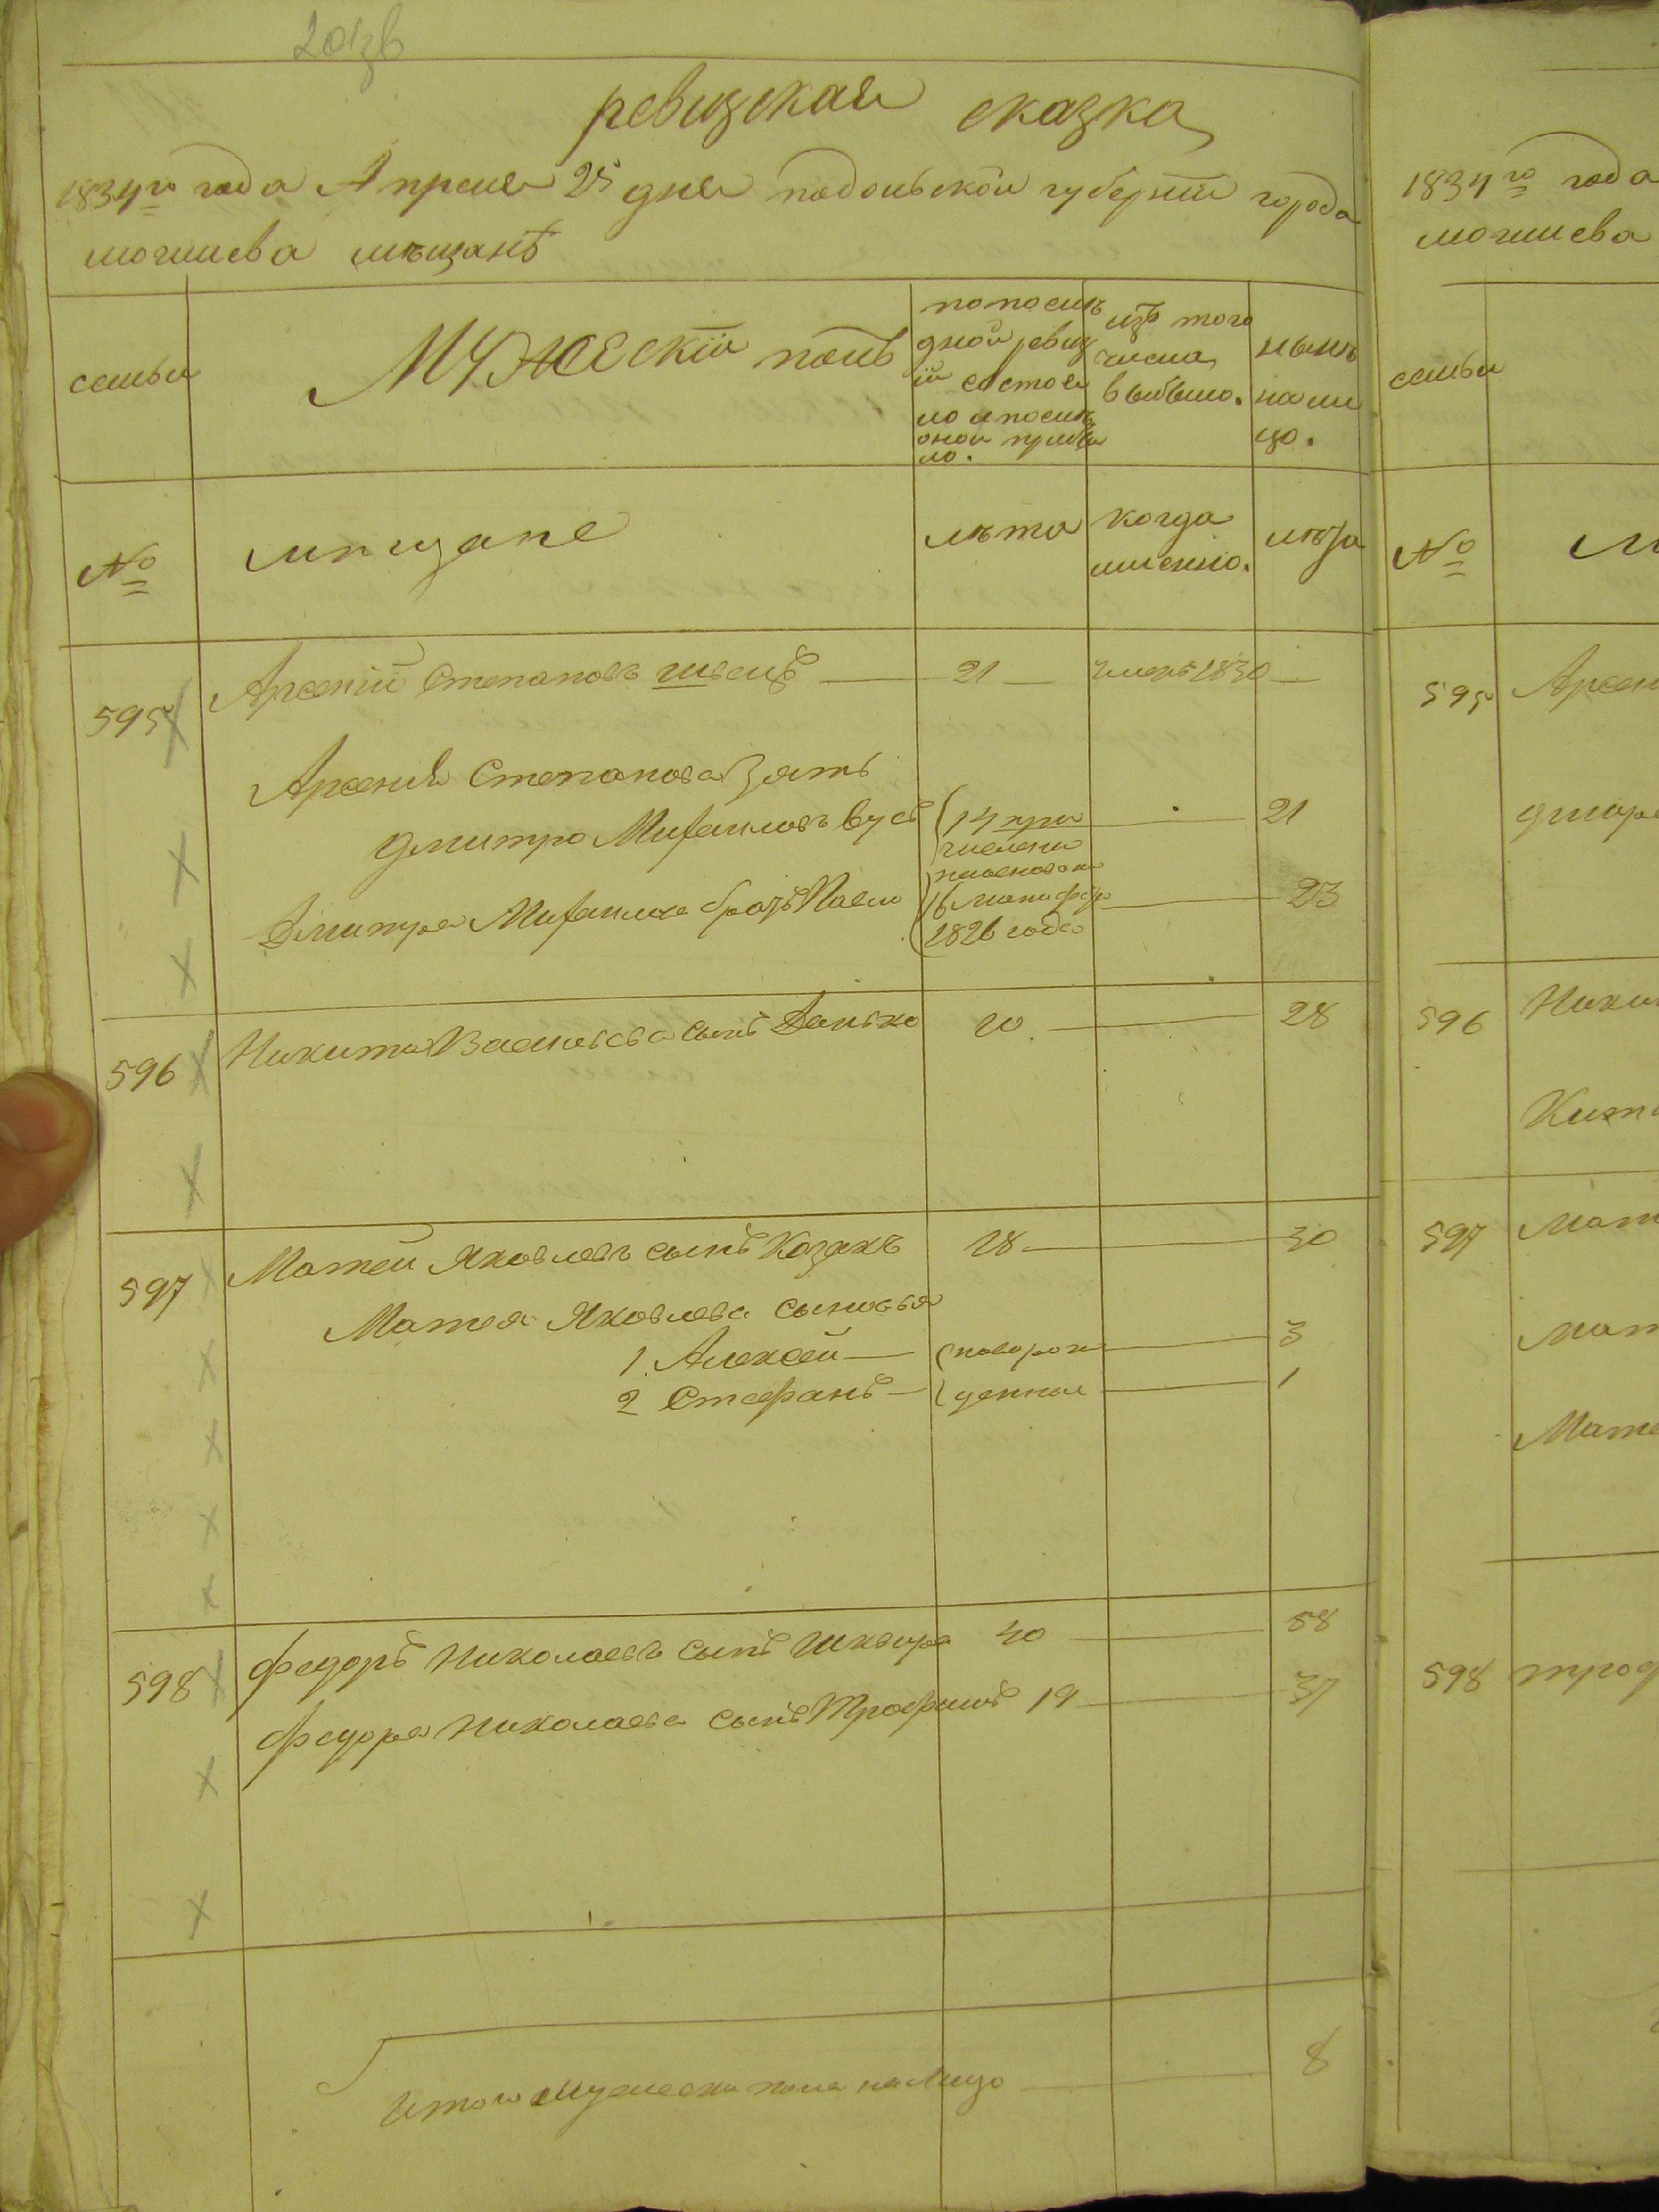 ревизская сказка
1834го года Апреля 25 дня подольской губерніи города
могилева мѣщанъ
семьи
МУЖЕСКІЙ полъ
по послѣ
дной ревиз
іи состоя
ло и послѣ
оной прибы
ло.
изъ того
числа
выбыло.
нынѣ
на ли
цо.
№
мѣщане
лѣта
когда
имянно.
лѣта
595
Арсеній Степановъ Швецъ 21 умеръ 1830
Арсенія Степанова зять
Дмитро Михаиловъ Вусъ 14 при 21
числены
Дмитра Михаилова братъ 16 манифес 23
1826 года
596 Никита Васильева сынъ Данько 20 28
597 Матей Яковлевъ сынъ Козакъ 28 30
Матея Яковлева сыновья
1. Алексей новорож 3
2 Стефанъ денныя 1
598 Федоръ Николаевъ сынъ Шквира 40 58
Федора Николаева сынъ Трофимъ 19 37
Итого мужеска пола налицо 8
1834го года
могилева
семьи
№
595
596
597
598